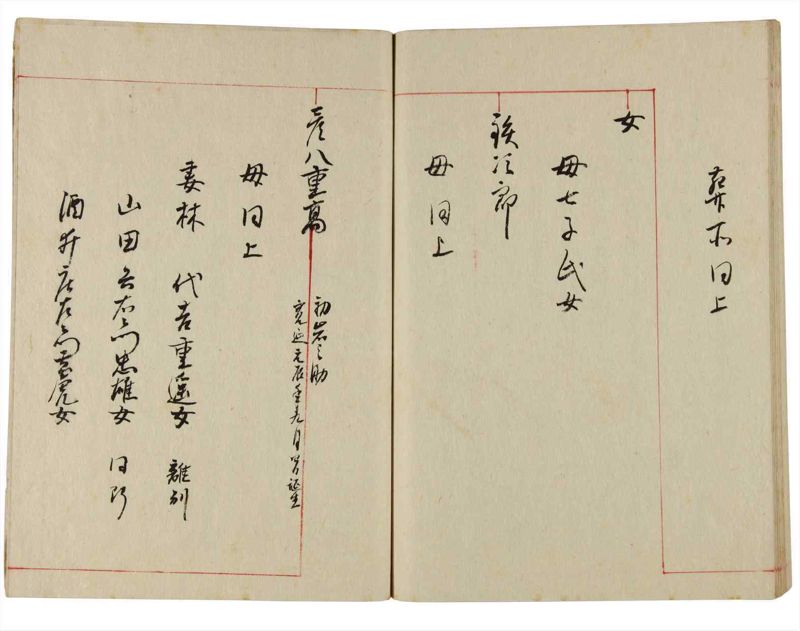 葬所同上
女
母七子氏女
鉄次郎
母同上
彦八重高
初岩之助
寛延元辰年九月 誕生
母同上
妻林 代吉重遠女 離別
山田 右衛門忠雄女 同断
酒井 左衛門 虎女